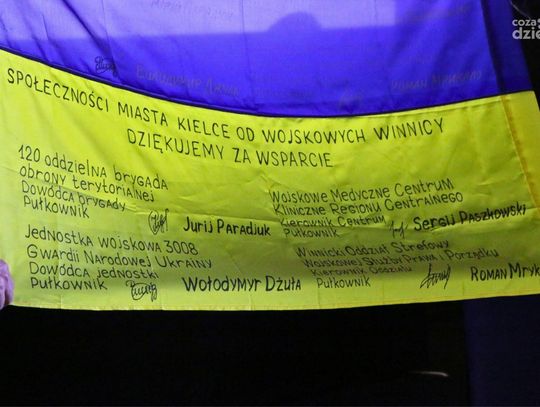 SPOŁECZNOŚCI MIASTA KIELCE OD WOJSKOWYCH WINNICY
DZIĘKUJEMY ZA WSPARCIE
120 oddzielna brygada
obrony terytorialnej
Dowódca brygady
Pułkownik Jurij Paradiuk
Jednostka wojskowa 3008
Gwardii Narodowej Ukrainy
Dowódca jednostki
Pułkownik Wołodymyr Dżuła
Wojskowe Medyczne Centrum
Kliniczne Regionu Centralnego
Kierownik Centrum
Pułkownik Sergij Paszkowski
Winnicki Oddział Strefowy
Wojskowej Służby Prawa i Porządku
Kierownik Oddziału
Pułkownik ROMAN Mryk
coza
dzie